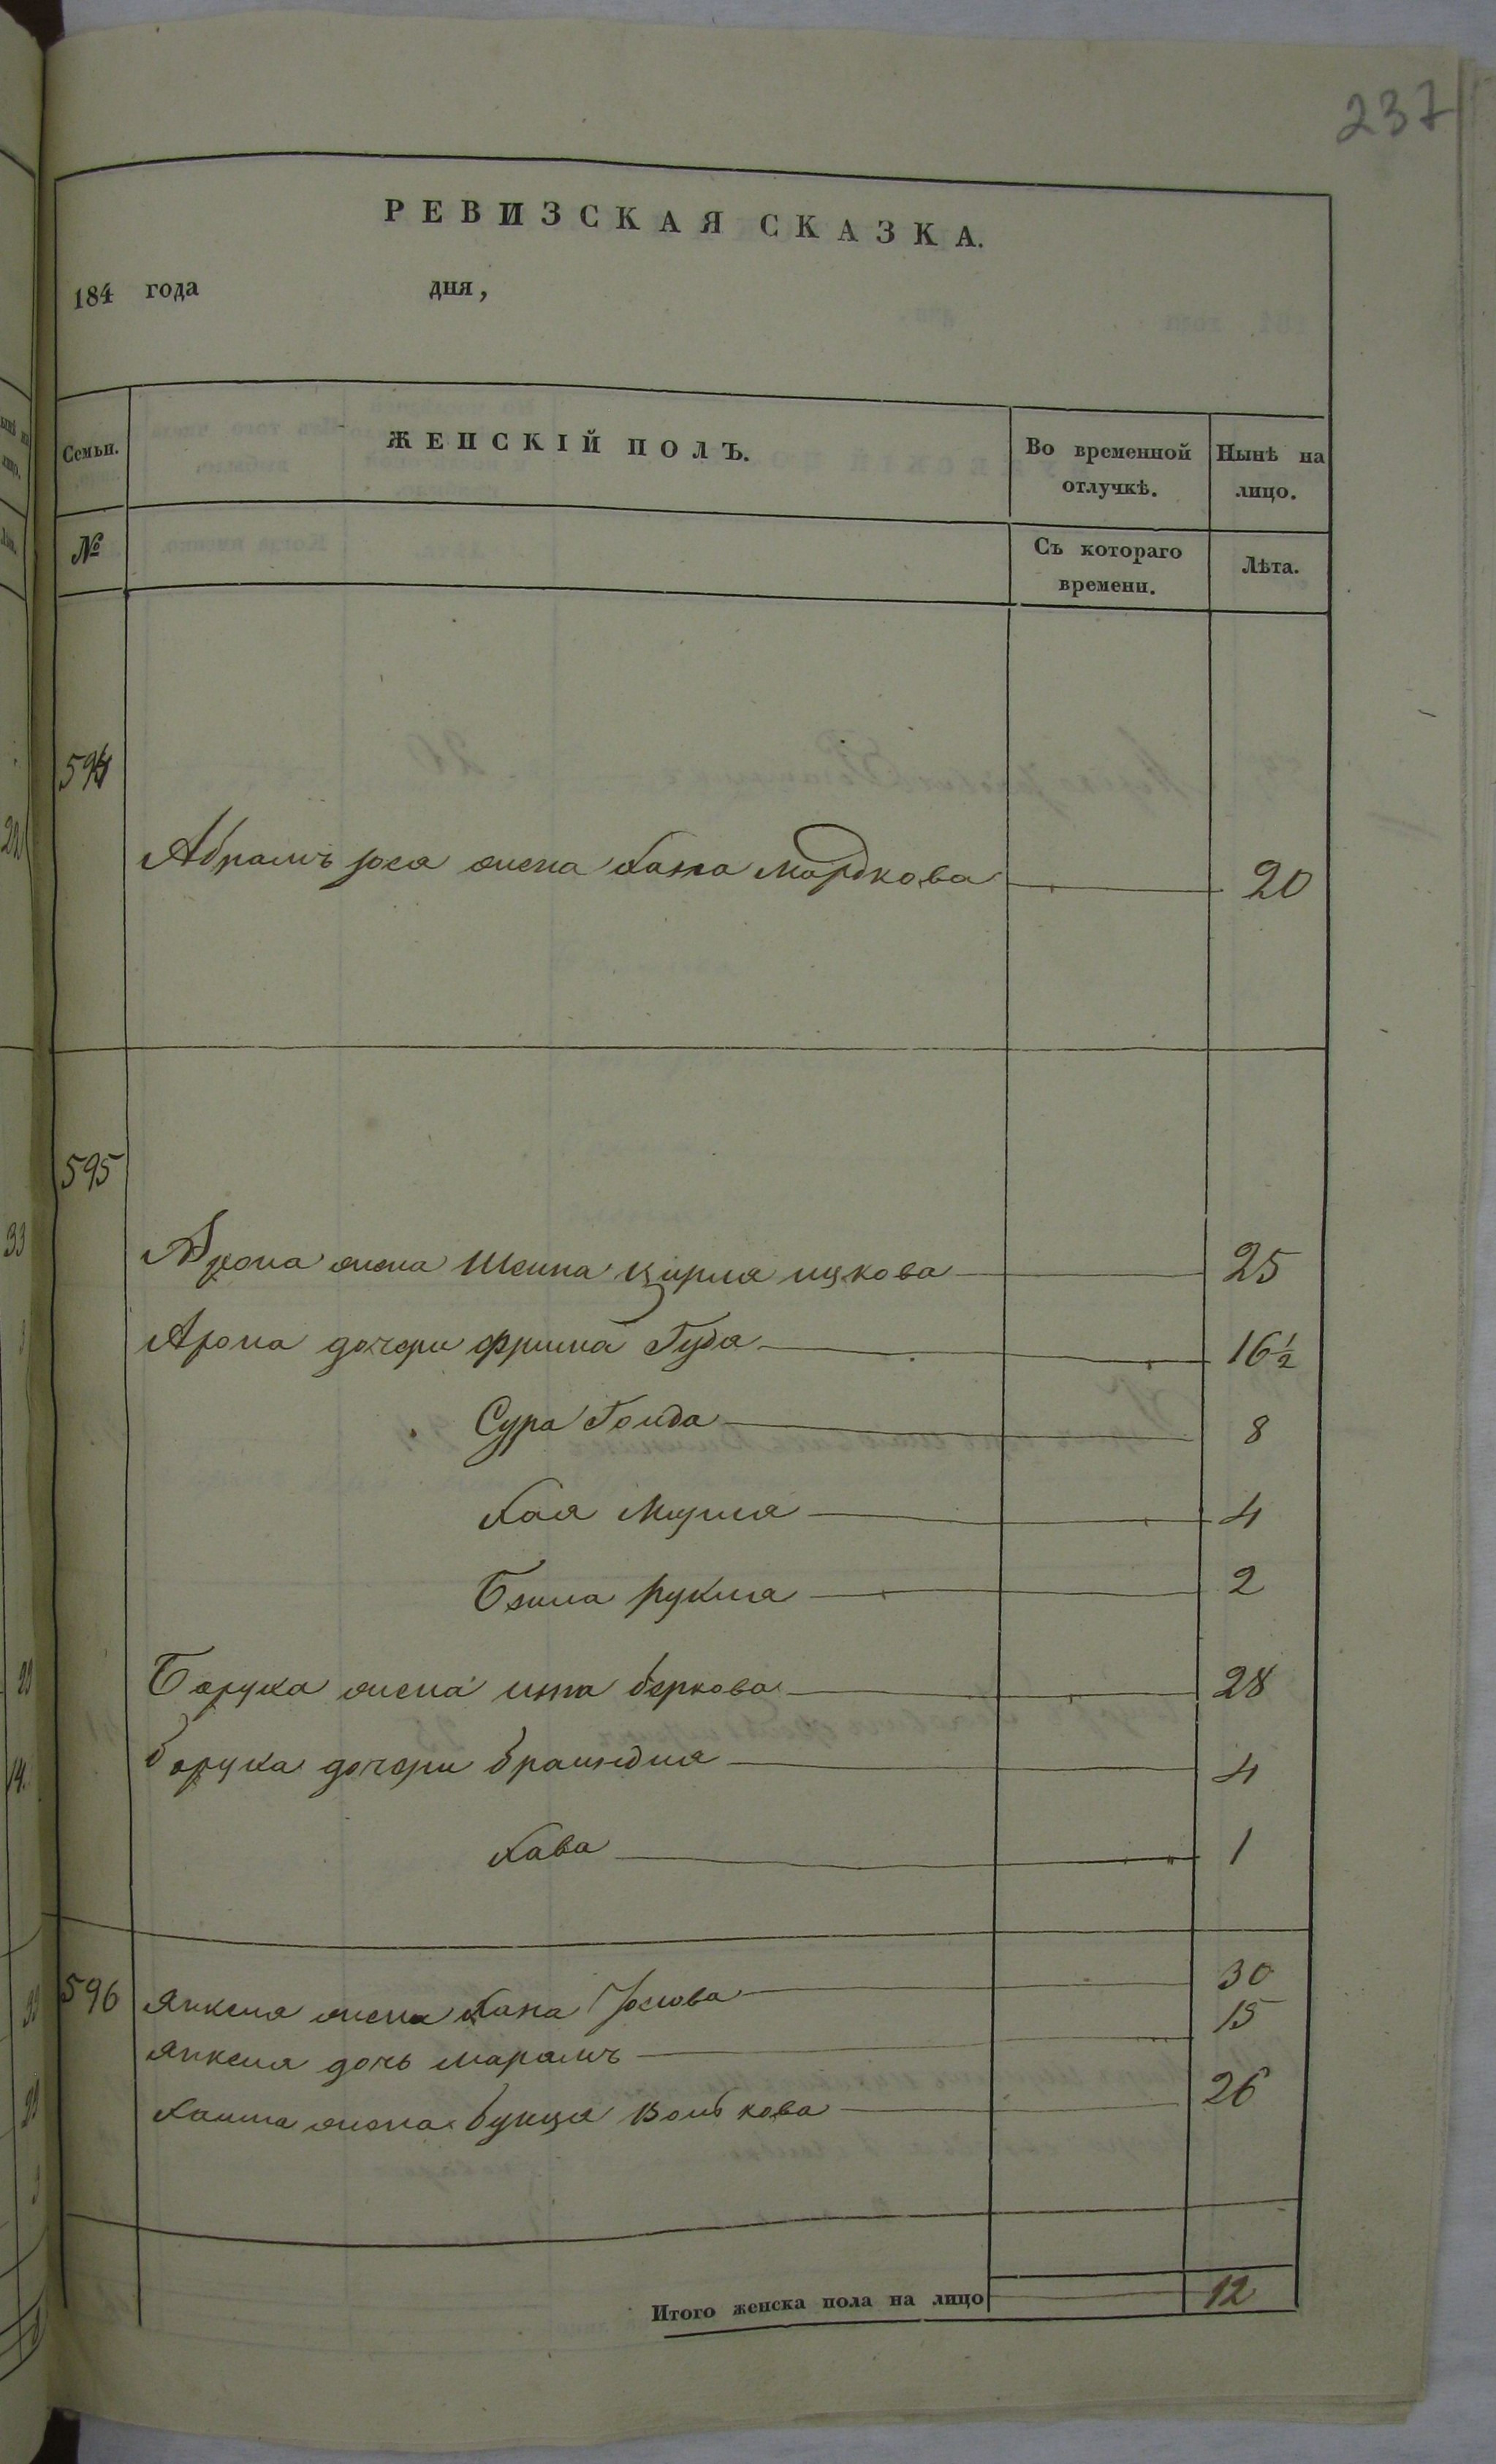 237
РЕВИЗСКАЯ СКАЗКА.
184 года дня,
Семьи. ЖЕНСКІЙ ПОЛЪ. Во временной отлучкѣ. Нынѣ на лицо.
№ Съ котораго времени. Лѣта.
594
Абрамъ жена Хана Мордкова 20
595
Арона жена Шеина Цирля ицкова 25
Арона дочери Фрима Гуда 16½
Сура Голда 8
Хая 4
Беила Рухля 2
Боруха жена ита беркова 28
боруха дочери браиндля 4
Хава 1
596 Янкеля жена Хана 30
Янкеля дочь Марамъ 15
Хаима жена Волькова 26
Итого женска пола на лицо 12